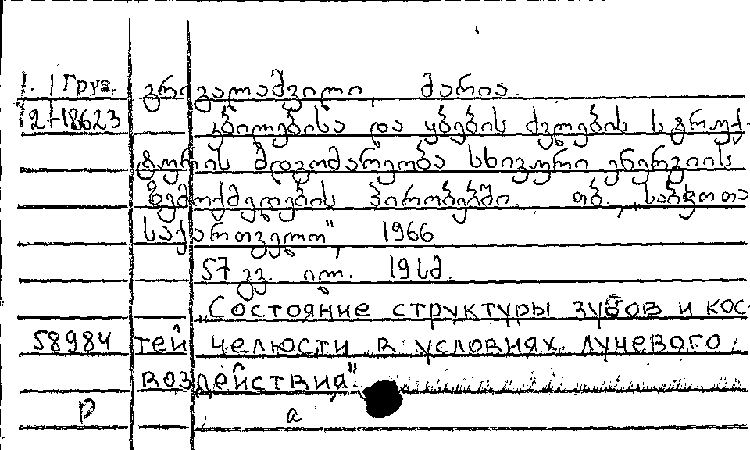 1. | Груз. გრიგალაშვილი, მარია.
2-18623 კბილებისა და ყბების ძვლების სტრუქ-
ტურის მდგომარეობა სხივური ენერგიის
ზემოქმედების პირობებში. თბ., „საბჭოთა
საქართველო", 1966
57 გვ. ილ. 19 სმ.
„Состояние структуры зубов и кос-
58984 тей челюсти в условиях лучевого
воздействия"
р а